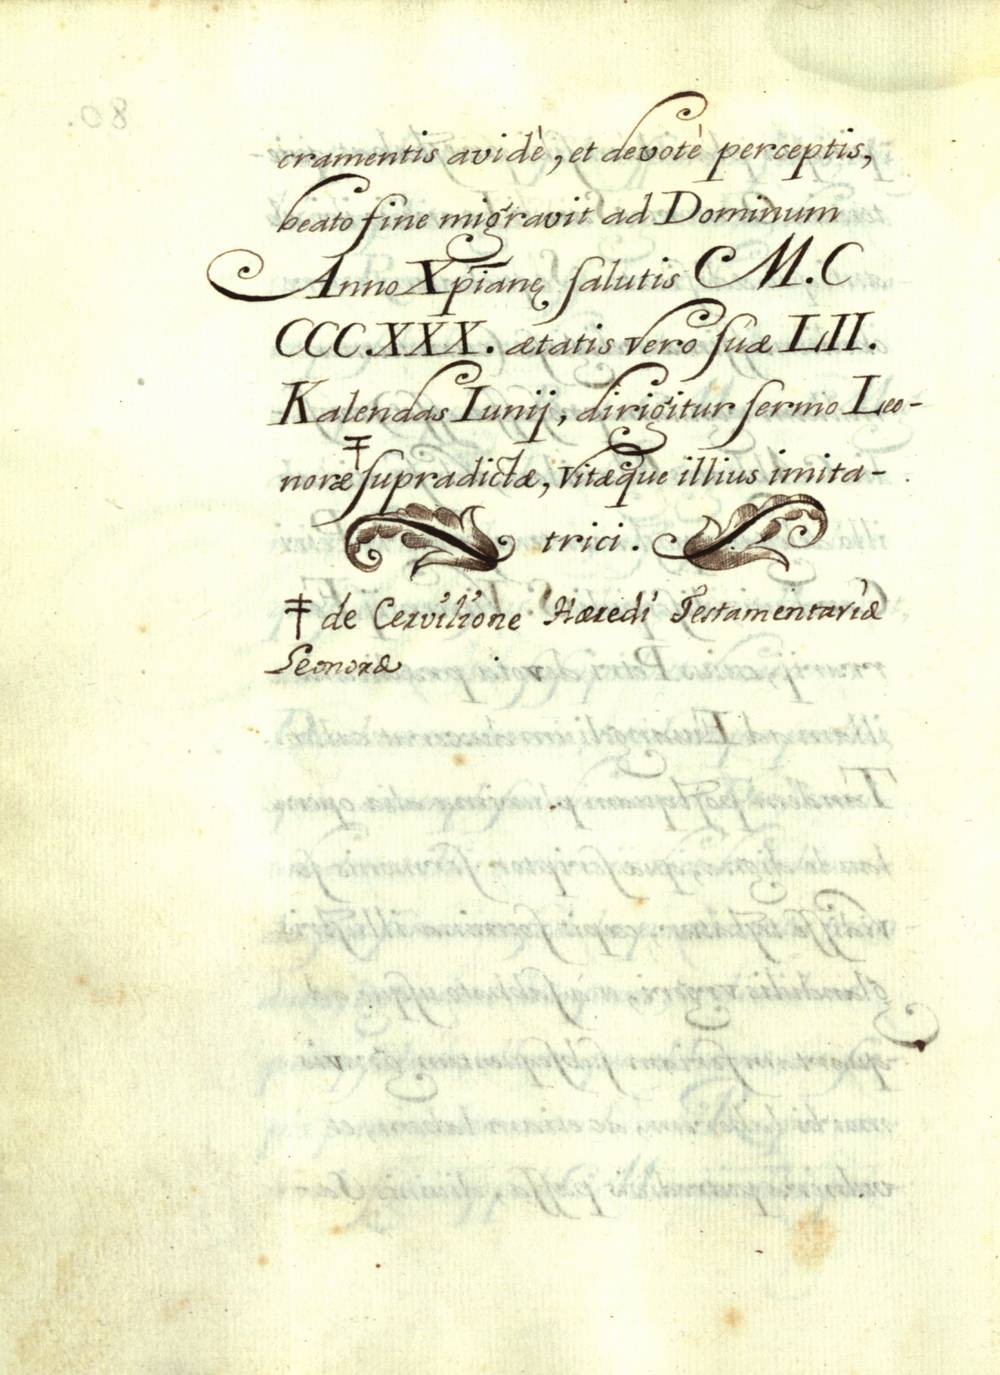 cramentis avidè, et devotè perceptis,
beato fine migravit ad Dominum
Anno Xpianę salutis M.C
CCC.XXX. ætatis vero suæ LII.
Kalendas Iunij, dirigitur sermo Leo-
noræ ‡ supradictæ, vitæque illius imita-
trici.
‡ de Cervilione Hæredi Testamentariæ
Leonoræ